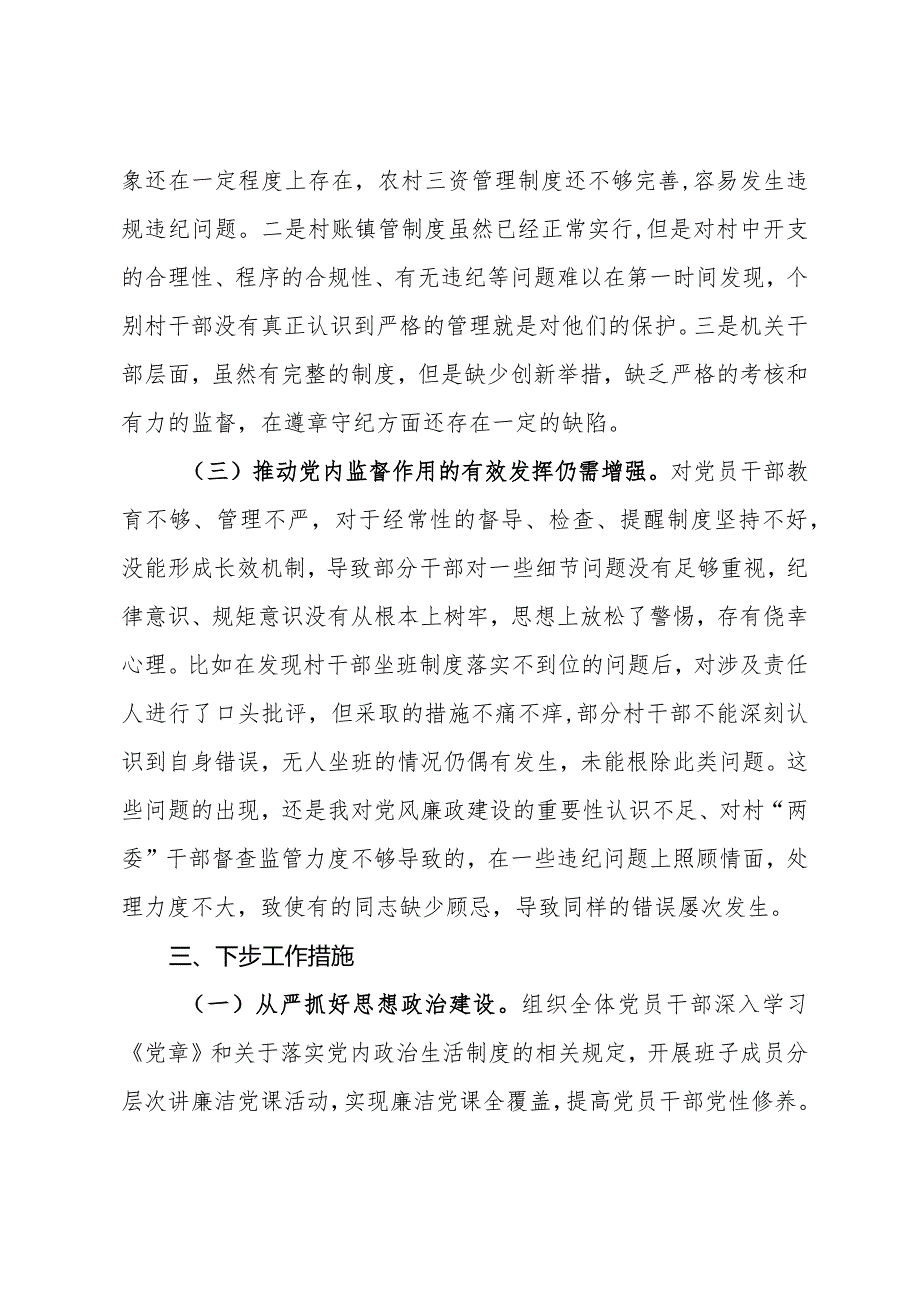 象还在一定程度上存在，农村三资管理制度还不够完善,容易发生违
规违纪问题。二是村账镇管制度虽然已经正常实行,但是对村中开支
的合理性、程序的合规性、有无违纪等问题难以在第一时间发现，个
别村干部没有真正认识到严格的管理就是对他们的保护。三是机关干
部层面，虽然有完整的制度，但是缺少创新举措，缺乏严格的考核和
有力的监督，在遵章守纪方面还存在一定的缺陷。
（三）推动党内监督作用的有效发挥仍需增强。对党员干部教
育不够、管理不严，对于经常性的督导、检查、提醒制度坚持不好，
没能形成长效机制，导致部分干部对一些细节问题没有足够重视，纪
律意识、规矩意识没有从根本上树牢，思想上放松了警惕，存有侥幸
心理。比如在发现村干部坐班制度落实不到位的问题后，对涉及责任
人进行了口头批评，但采取的措施不痛不痒,部分村干部不能深刻认
识到自身错误，无人坐班的情况仍偶有发生，未能根除此类问题。这
些问题的出现，还是我对党风廉政建设的重要性认识不足、对村“两
委”干部督查监管力度不够导致的，在一些违纪问题上照顾情面，处
理力度不大，致使有的同志缺少顾忌，导致同样的错误屡次发生。
三、下步工作措施
（一）从严抓好思想政治建设。组织全体党员干部深入学习
《党章》和关于落实党内政治生活制度的相关规定，开展班子成员分
层次讲廉洁党课活动,实现廉洁党课全覆盖,提高党员干部党性修养。